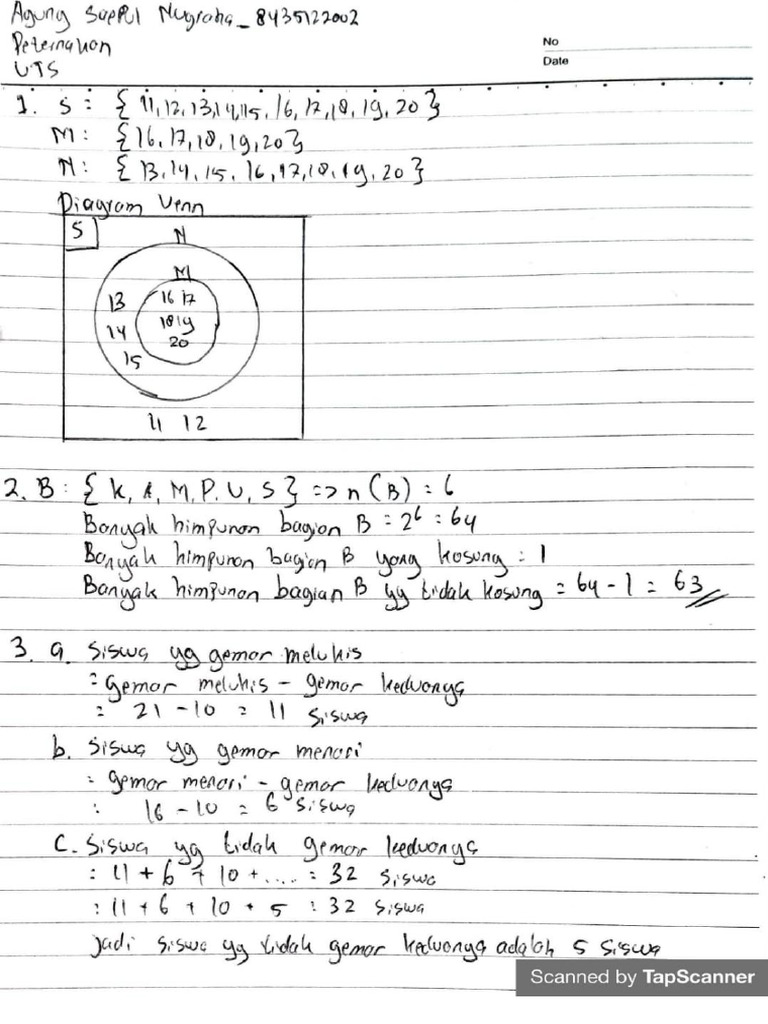 Agung Saepul Nugraha_8435122002
Peternakan
UTS
No
Date
1. S = { 11, 12, 13, 14, 15, 16, 17, 18, 19, 20 }
M : { 16, 17, 18, 19, 20 }
N : { 13, 14, 15, 16, 17, 18, 19, 20 }
Diagram Venn
S
N
M
13
16 17
14
18 19
20
15
11 12
2. B : { K, A, M, P, U, S } => n (B) = 6
Banyak himpunan bagian B = 2⁶ = 64
Banyak himpunan bagian B yang kosong = 1
Banyak himpunan bagian B yg tidak kosong = 64 - 1 = 63
3. a. Siswa yg gemar melukis
= Gemar melukis - gemar keduanya
= 21 - 10 = 11 Siswa
b. Siswa yg gemar menari
= gemar menari - gemar keduanya
= 16 - 10 = 6 Siswa
C. Siswa yg tidak gemar keduanya
= 11 + 6 + 10 + .... = 32 Siswa
= 11 + 6 + 10 + 5 = 32 Siswa
Jadi siswa yg tidak gemar keduanya adalah 5 Siswa
Scanned by TapScanner